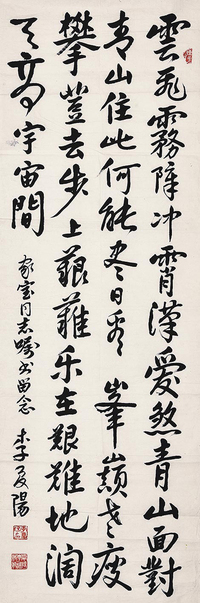 雲飛霧障冲霄漢愛煞青山面對
青山住此何能尽日看峯巔老瘦
攀登去步上艱難乐在艱難地阔
天高宇宙間
家宝同志嘱书留念 李夏陽